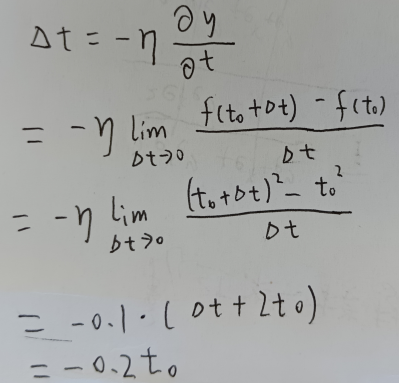 Δt = -η ∂y/∂t
= -η lim Δt→0 (f(t₀+Δt) - f(t₀))/Δt
= -η lim Δt→0 ((t₀+Δt)² - t₀²)/Δt
= -0.1·(Δt+2t₀)
= -0.2t₀